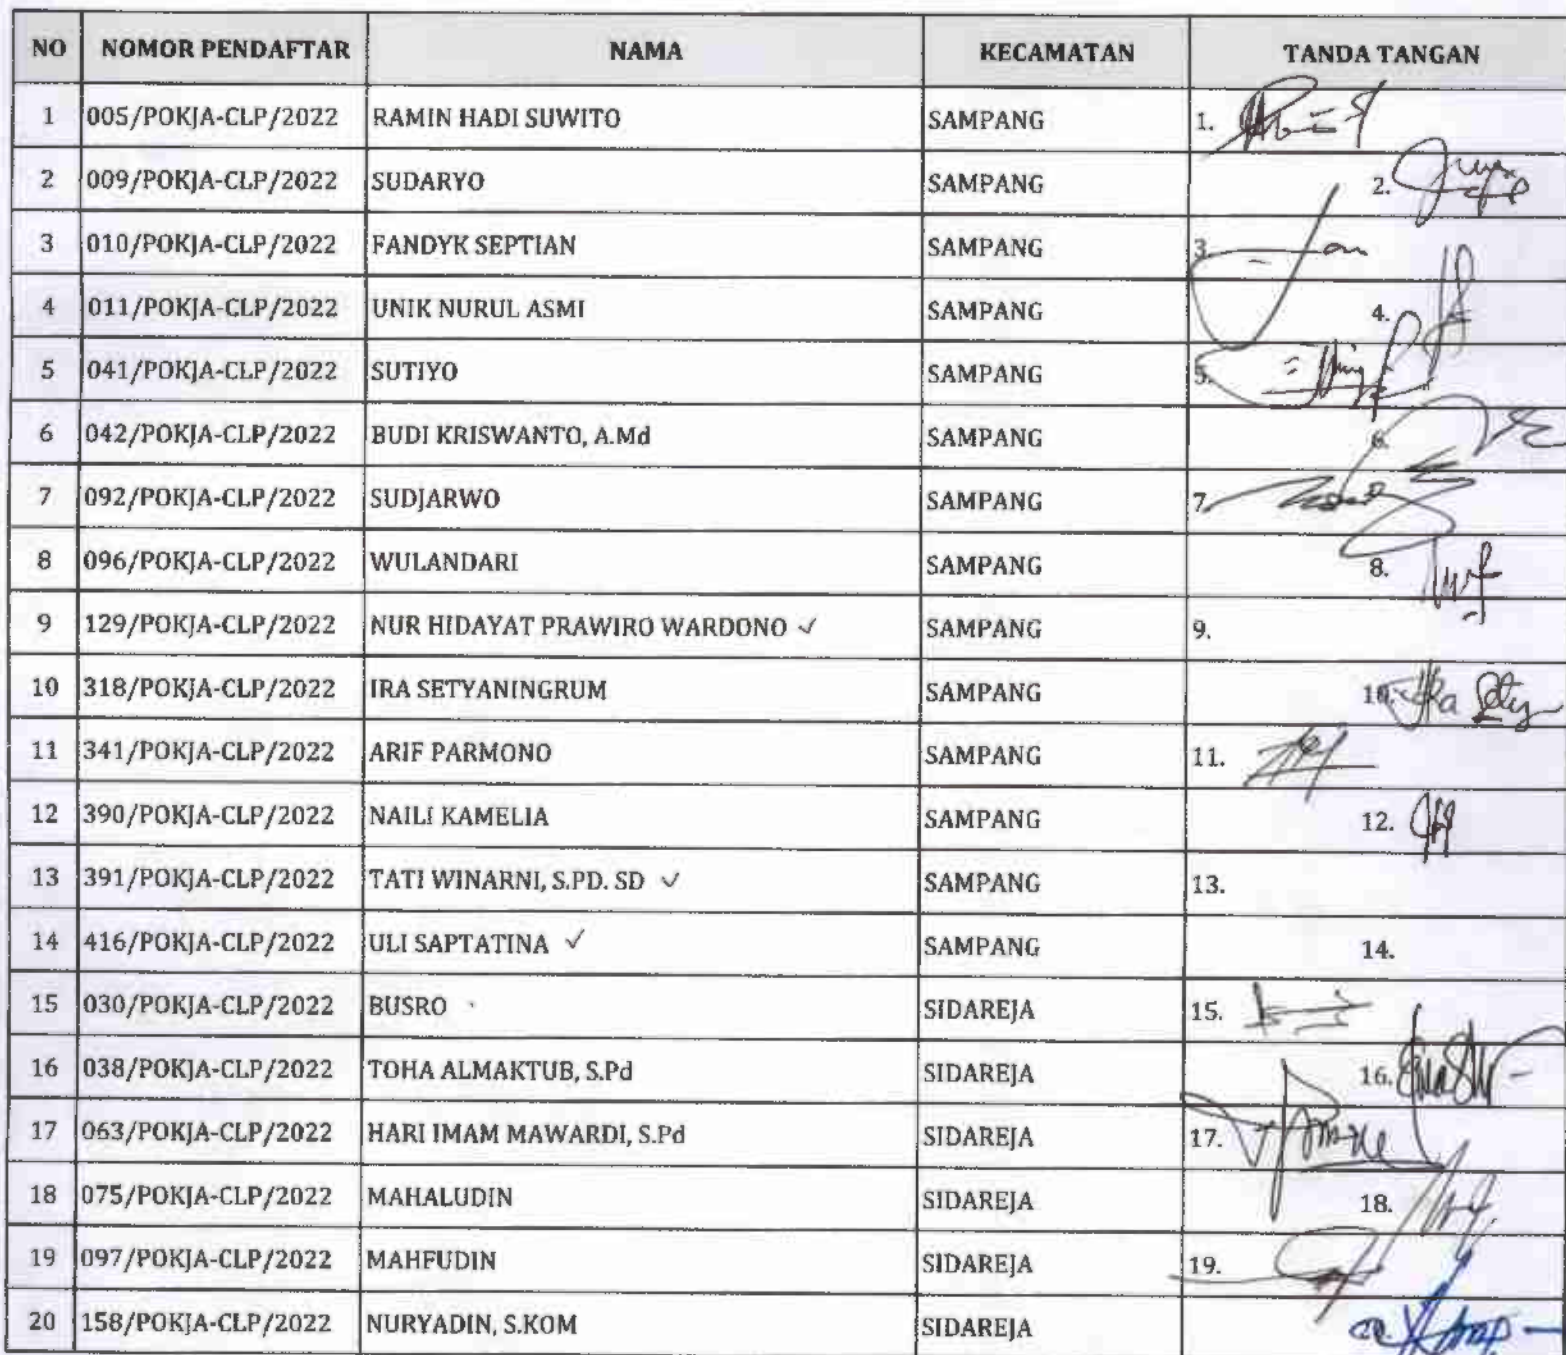 NO NOMOR PENDAFTAR NAMA KECAMATAN TANDA TANGAN
1 005/POKJA-CLP/2022 RAMIN HADI SUWITO SAMPANG 1.
2 009/POKJA-CLP/2022 SUDARYO SAMPANG 2.
3 010/POKJA-CLP/2022 FANDYK SEPTIAN SAMPANG 3.
4 011/POKJA-CLP/2022 UNIK NURUL ASMI SAMPANG 4.
5 041/POKJA-CLP/2022 SUTIYO SAMPANG 5.
6 042/POKJA-CLP/2022 BUDI KRISWANTO, A.Md SAMPANG 6.
7 092/POKJA-CLP/2022 SUDJARWO SAMPANG 7.
8 096/POKJA-CLP/2022 WULANDARI SAMPANG 8.
9 129/POKJA-CLP/2022 NUR HIDAYAT PRAWIRO WARDONO ✓ SAMPANG 9.
10 318/POKJA-CLP/2022 IRA SETYANINGRUM SAMPANG 10.
11 341/POKJA-CLP/2022 ARIF PARMONO SAMPANG 11.
12 390/POKJA-CLP/2022 NAILI KAMELIA SAMPANG 12.
13 391/POKJA-CLP/2022 TATI WINARNI, S.PD. SD ✓ SAMPANG 13.
14 416/POKJA-CLP/2022 ULI SAPTATINA ✓ SAMPANG 14.
15 030/POKJA-CLP/2022 BUSRO SIDAREJA 15.
16 038/POKJA-CLP/2022 TOHA ALMAKTUB, S.Pd SIDAREJA 16.
17 063/POKJA-CLP/2022 HARI IMAM MAWARDI, S.Pd SIDAREJA 17.
18 075/POKJA-CLP/2022 MAHALUDIN SIDAREJA 18.
19 097/POKJA-CLP/2022 MAHFUDIN SIDAREJA 19.
20 158/POKJA-CLP/2022 NURYADIN, S.KOM SIDAREJA 20.